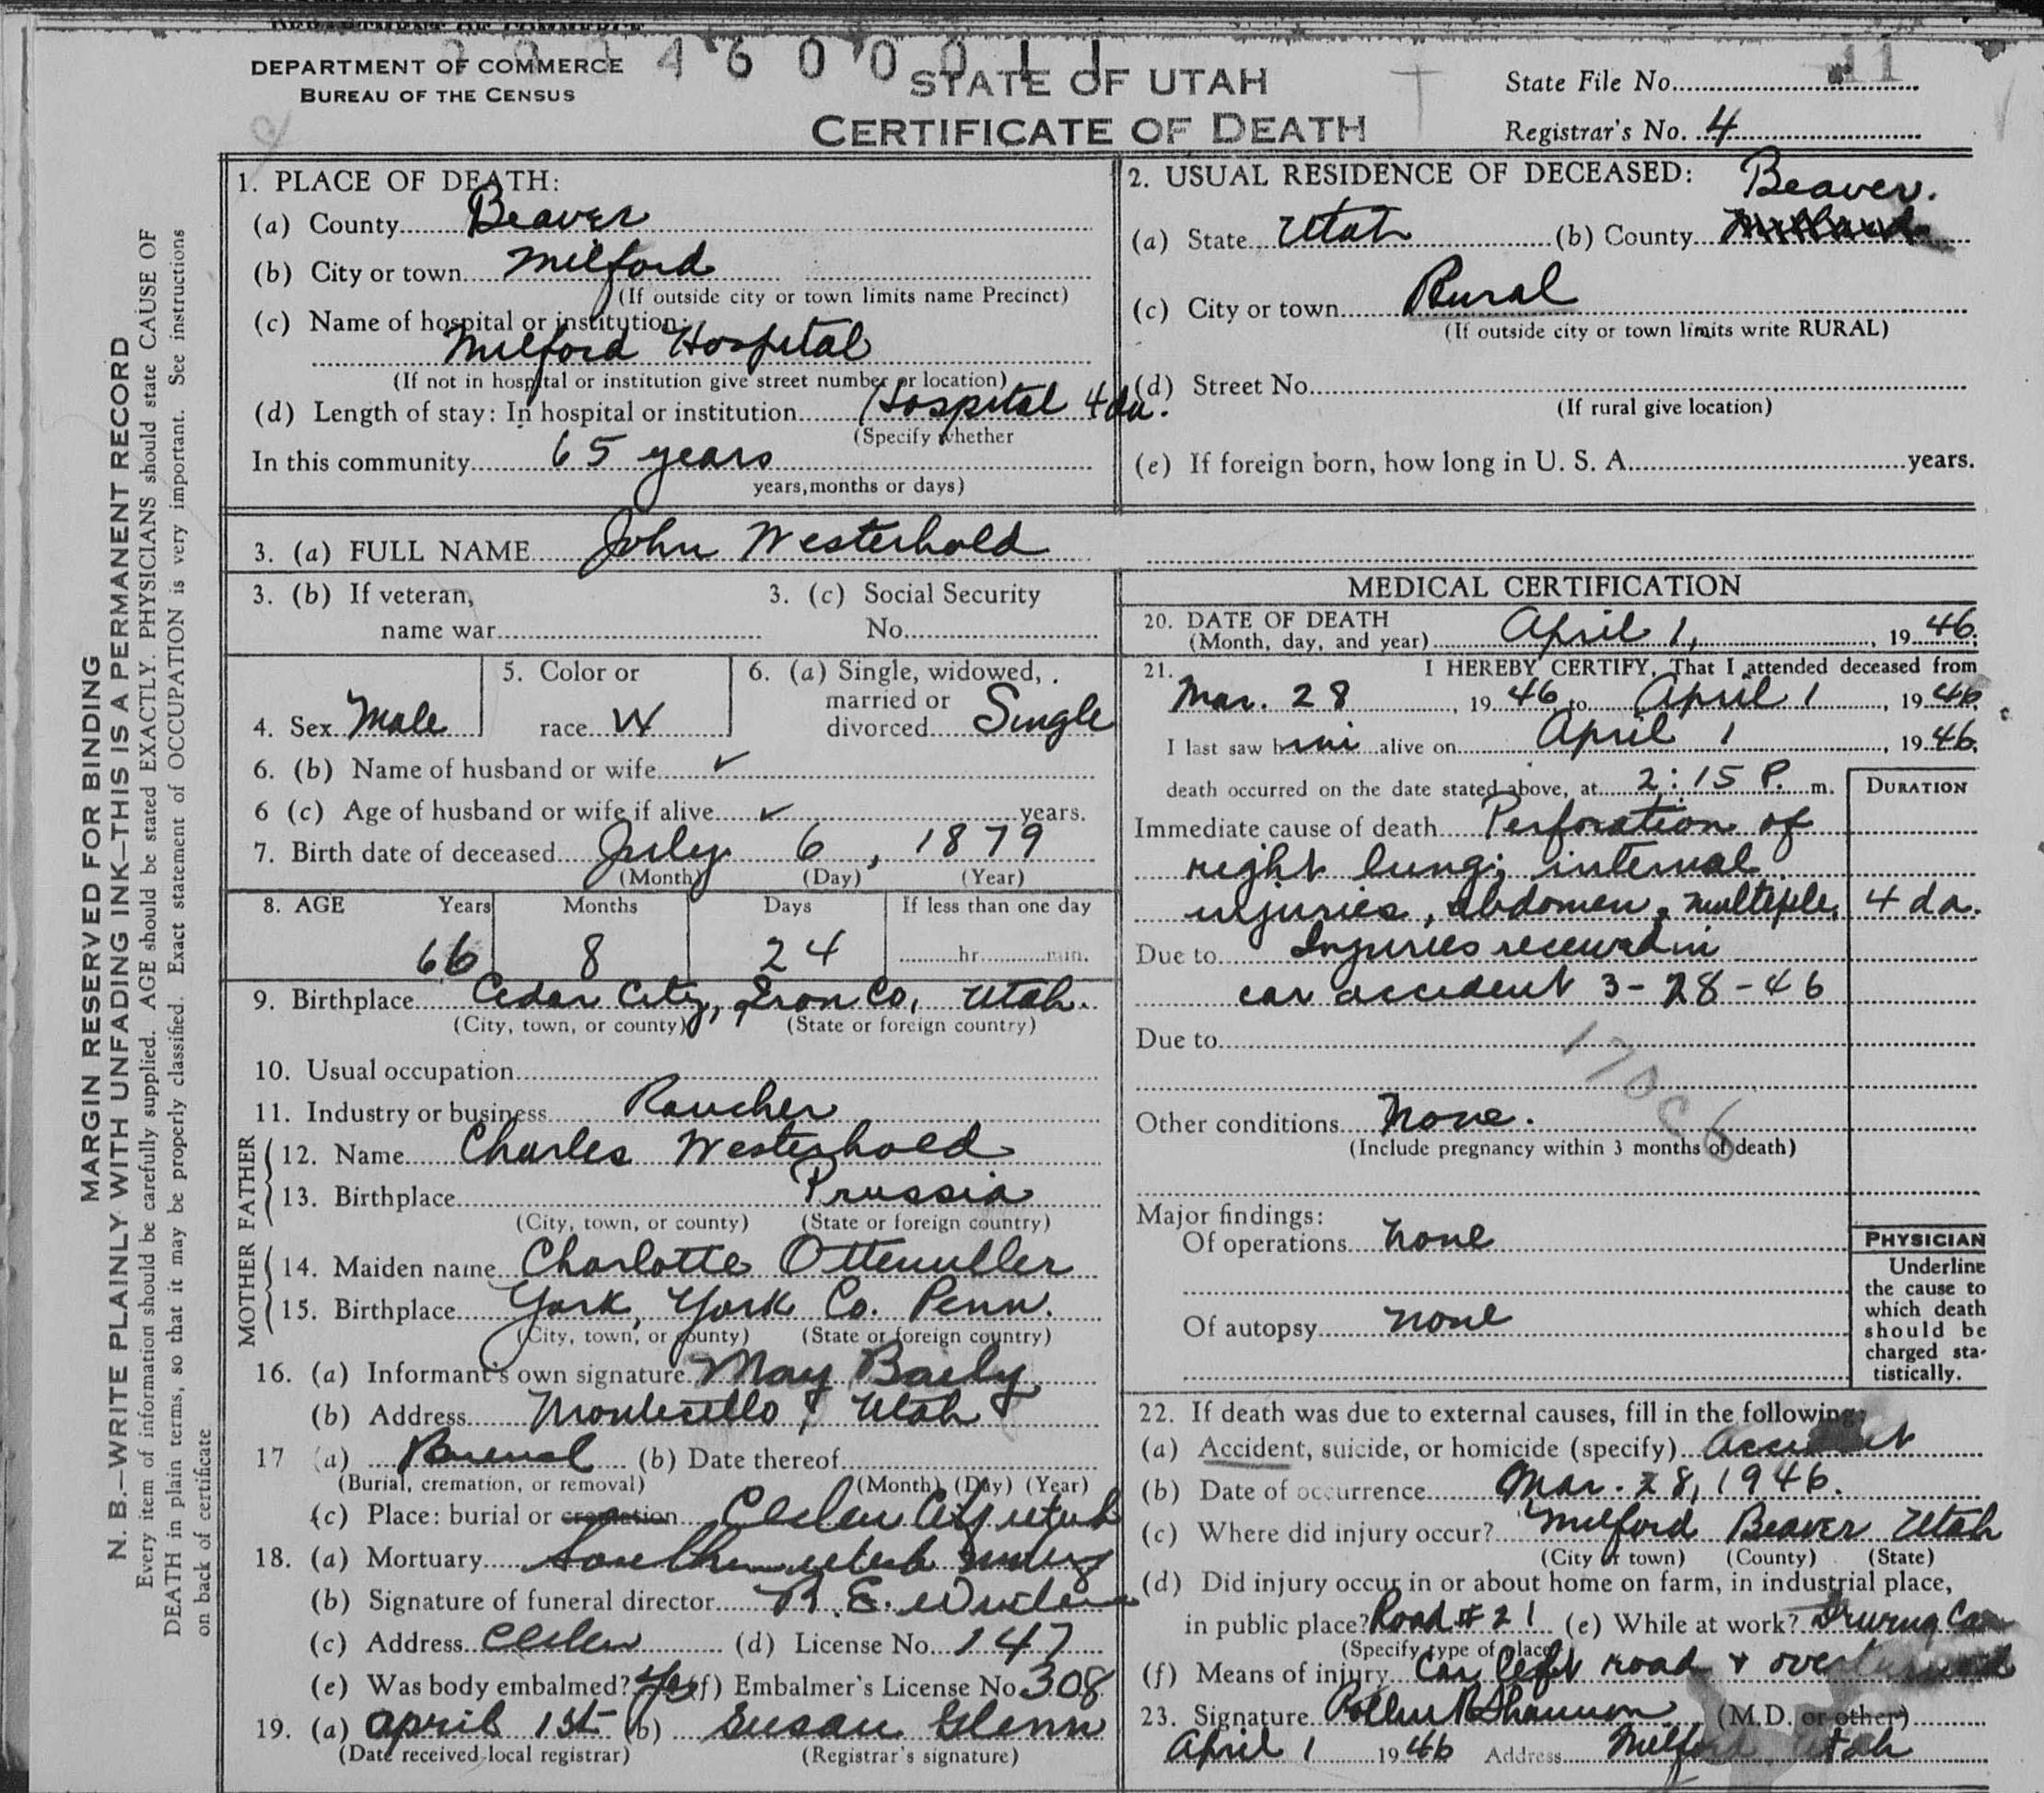 DEPARTMENT OF COMMERCE
BUREAU OF THE CENSUS
4 6 0 0 0 1 1
STATE OF UTAH
CERTIFICATE OF DEATH
State File No. 11
Registrar's No. 4
MARGIN RESERVED FOR BINDING
N. B.—WRITE PLAINLY WITH UNFADING INK—THIS IS A PERMANENT RECORD
Every item of information should be carefully supplied. AGE should be stated EXACTLY. PHYSICIANS should state CAUSE OF
DEATH in plain terms, so that it may be properly classified. Exact statement of OCCUPATION is very important. See instructions
on back of certificate
1. PLACE OF DEATH:
(a) County Beaver
(b) City or town Milford
(If outside city or town limits name Precinct)
(c) Name of hospital or institution:
Milford Hospital
(If not in hospital or institution give street number or location)
(d) Length of stay: In hospital or institution Hospital 4 da.
(Specify whether
In this community 65 years
years, months or days)
2. USUAL RESIDENCE OF DECEASED:
Beaver.
(a) State Utah (b) County Millard
(c) City or town Rural
(If outside city or town limits write RURAL)
(d) Street No.
(If rural give location)
(e) If foreign born, how long in U. S. A. years.
3. (a) FULL NAME John Westerhold
3. (b) If veteran,
name war
3. (c) Social Security
No.
4. Sex Male
5. Color or
race W
6. (a) Single, widowed,
married or
divorced Single
6. (b) Name of husband or wife ✓
6 (c) Age of husband or wife if alive ✓ years.
7. Birth date of deceased July 6, 1879
(Month) (Day) (Year)
8. AGE Years Months Days If less than one day
66 8 24 hr. min.
9. Birthplace Cedar City, Iron Co, Utah.
(City, town, or county) (State or foreign country)
10. Usual occupation
11. Industry or business Rancher
FATHER
12. Name Charles Westerhold
13. Birthplace Prussia
(City, town, or county) (State or foreign country)
MOTHER
14. Maiden name Charlotte Ottemuller
15. Birthplace York, York Co. Penn.
(City, town, or county) (State or foreign country)
16. (a) Informant's own signature May Baily
(b) Address Monticello, Utah
17 (a) Removal (b) Date thereof
(Burial, cremation, or removal) (Month) (Day) (Year)
(c) Place: burial or cremation Cedar City Utah
18. (a) Mortuary Southern Utah
(b) Signature of funeral director R. E.
(c) Address Cedar (d) License No. 147
(e) Was body embalmed? Yes (f) Embalmer's License No 308
19. (a) April 1st (b) Susan Glenn
(Date received local registrar) (Registrar's signature)
MEDICAL CERTIFICATION
20. DATE OF DEATH
(Month, day, and year) April 1, 1946.
21. I HEREBY CERTIFY, That I attended deceased from
Mar. 28, 1946 to April 1, 1946
I last saw him alive on April 1, 1946.
death occurred on the date stated above, at 2:15 P. m.
DURATION
Immediate cause of death Perforation of
right lung; internal
injuries, abdomen, multiple, 4 da.
Due to Injuries received in
car accident 3-28-46
Due to
170c6
Other conditions None.
(Include pregnancy within 3 months of death)
Major findings:
Of operations None
Of autopsy None
PHYSICIAN
Underline
the cause to
which death
should be
charged sta-
tistically.
22. If death was due to external causes, fill in the following:
(a) Accident, suicide, or homicide (specify) Accident
(b) Date of occurrence Mar. 28, 1946.
(c) Where did injury occur? Milford Beaver Utah
(City or town) (County) (State)
(d) Did injury occur in or about home on farm, in industrial place,
in public place? Road #21 (e) While at work? Driving Car
(Specify type of place)
(f) Means of injury Car left road & overturned
23. Signature Shannon (M.D. or other)
April 1 1946 Address Milford Utah